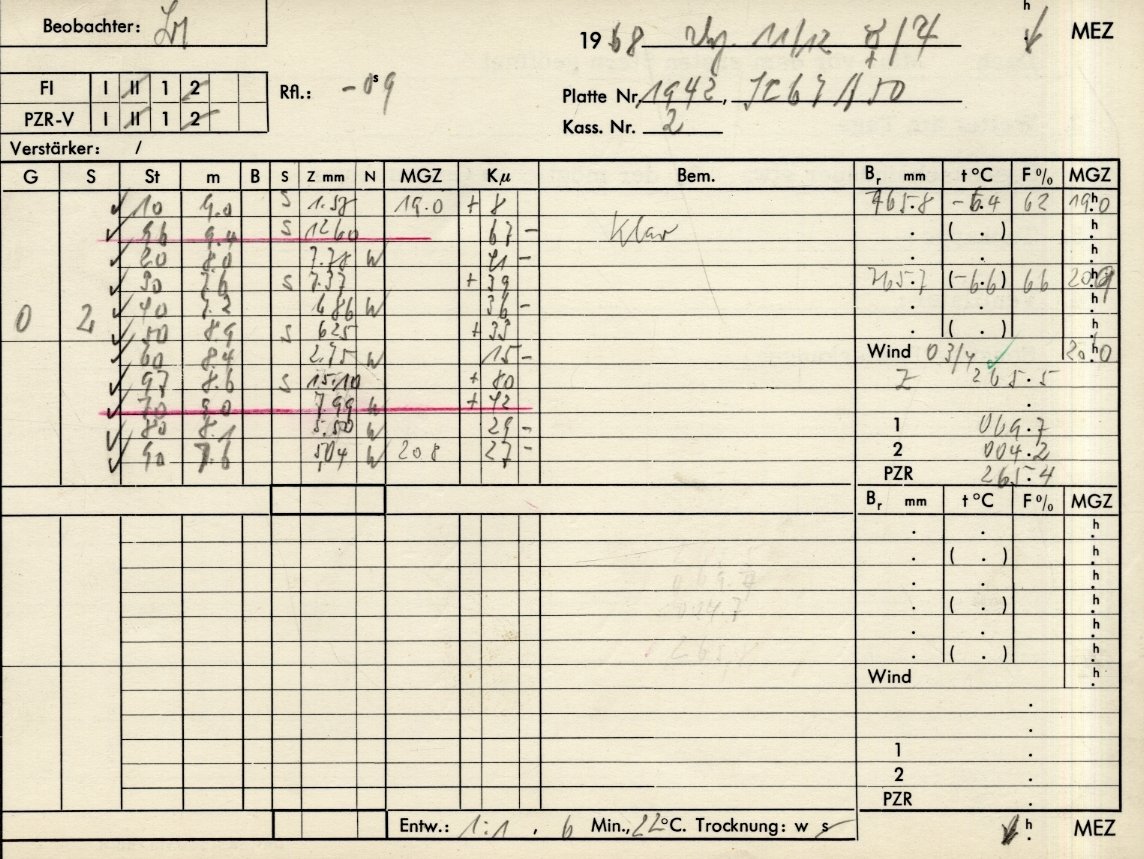 Beobachter:
1968 11/12 h MEZ
FI I II 1 2
PZR-V I II 1 2
Rfl.: -0ˢ9
Platte Nr. 1942,
Kass. Nr. 2
Verstärker: /
G S St m B S Z mm N MGZ Kμ Bem. Bᵣ mm t°C F% MGZ
✓ 10 9.0 S 1.58 19.0 + 8 765.8 -6.4 62 19ʰ0
✓ 96 9.4 S 1260 67 - Klar . ( . ) h
✓ 20 8.0 7.78 W 41 - . . h
✓ 30 7.6 S 7.37 + 39 765.7 (-6.6) 66 20ʰ9
0 2 ✓ 40 7.2 6.86 W 36 - . . h
✓ 50 8.9 S 625 + 33 . ( . ) h
✓ 60 8.4 2.75 W 15 - Wind 03/4 20ʰ0
✓ 97 8.6 S 15.10 + 80 Z 265.5
✓ 70 9.0 7.99 W + 42 .
✓ 80 8.1 5.50 W 29 - 1 069.7
✓ 90 7.6 5.04 W 20.8 27 - 2 004.2
PZR 265.4
Bᵣ mm t°C F% MGZ
. . h
. ( . ) h
. . h
. ( . ) h
. . h
. ( . ) h
Wind h
.
.
1 .
2 .
PZR .
Entw.: 1:1, 6 Min., 22°C. Trocknung: w s h MEZ